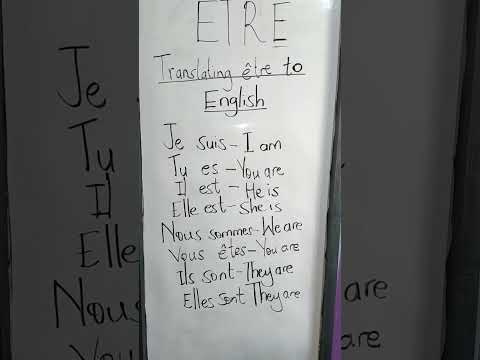 ETRE
Translating être to
English
Je suis - I am
Tu es - You are
Il est - He is
Elle est - She is
Nous sommes - We are
Vous êtes - You are
Ils sont - They are
Elles sont They are